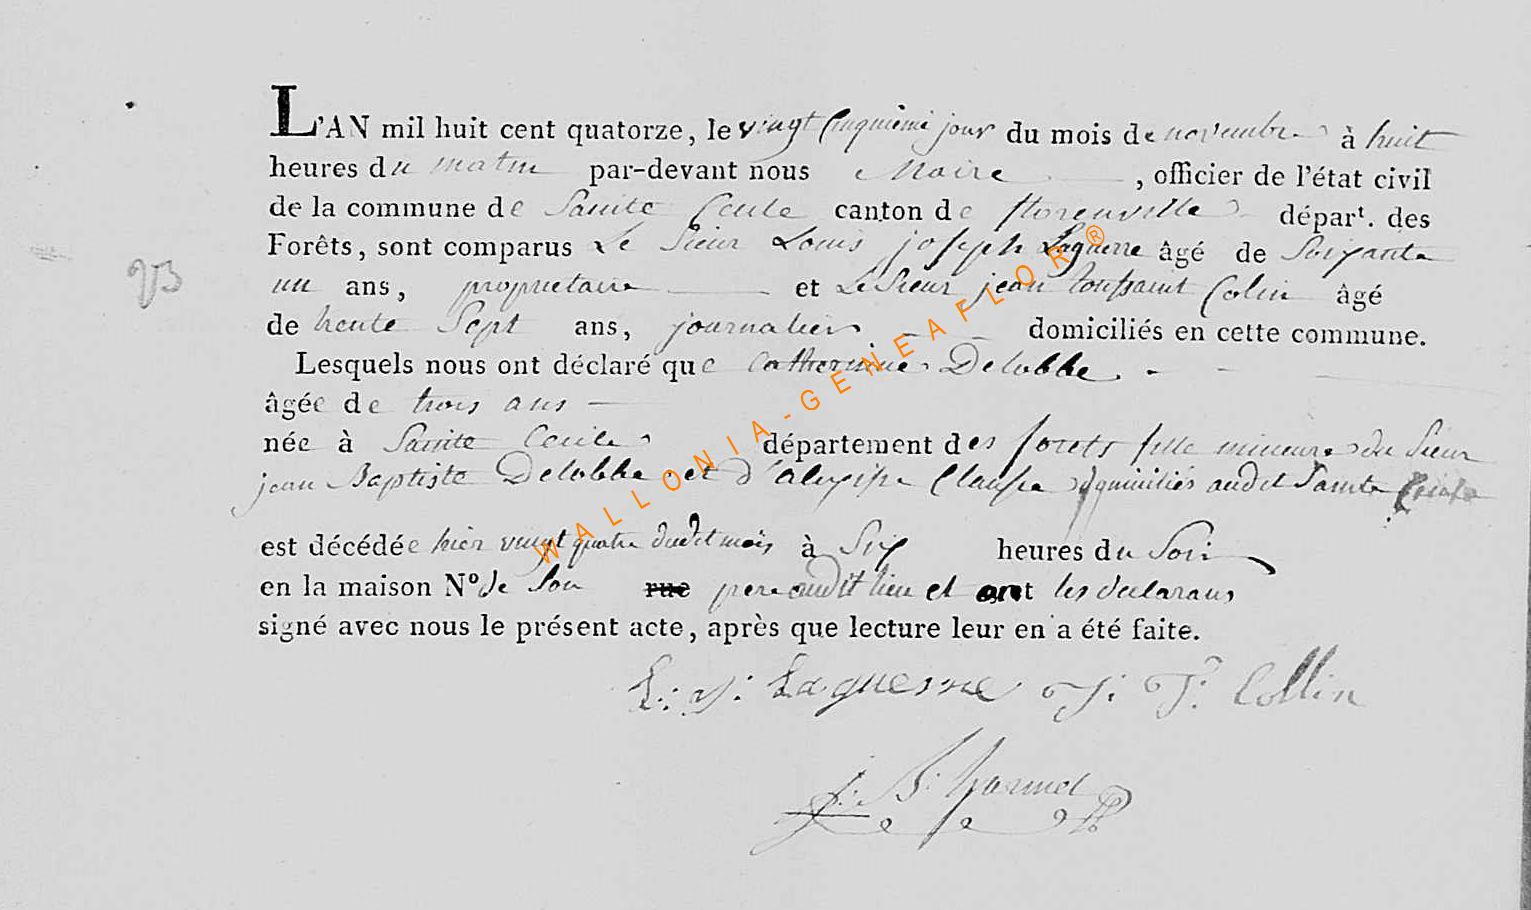 L'AN mil huit cent quatorze, le vingt cinquième jour du mois de novembre à huit
heures du matin par-devant nous Maire, officier de l'état civil
de la commune de Sainte Cecile canton de florenville départ. des
Forêts, sont comparus Le Sieur Louis joseph Laguerre âgé de Soixante
un ans, proprietaire et Le Sieur jean toussaint Colin âgé
de trente Sept ans, journalier domiciliés en cette commune.
Lesquels nous ont déclaré que Catherine Delobbe
âgée de trois ans
née à Sainte Cecile département des forets fille mineure du Sieur
jean Baptiste Delobbe et d' Clausse domiciliés audit Sainte Cecile
est décédée hier vingt quatre dudit mois à Six heures du Soir
en la maison Nº de Son rue pere audit lieu et ont les declarans
signé avec nous le présent acte, après que lecture leur en a été faite.
L: J: Laguerre J: T: Collin
J: B: harmel
WALLONIA-GENEAFLOR®